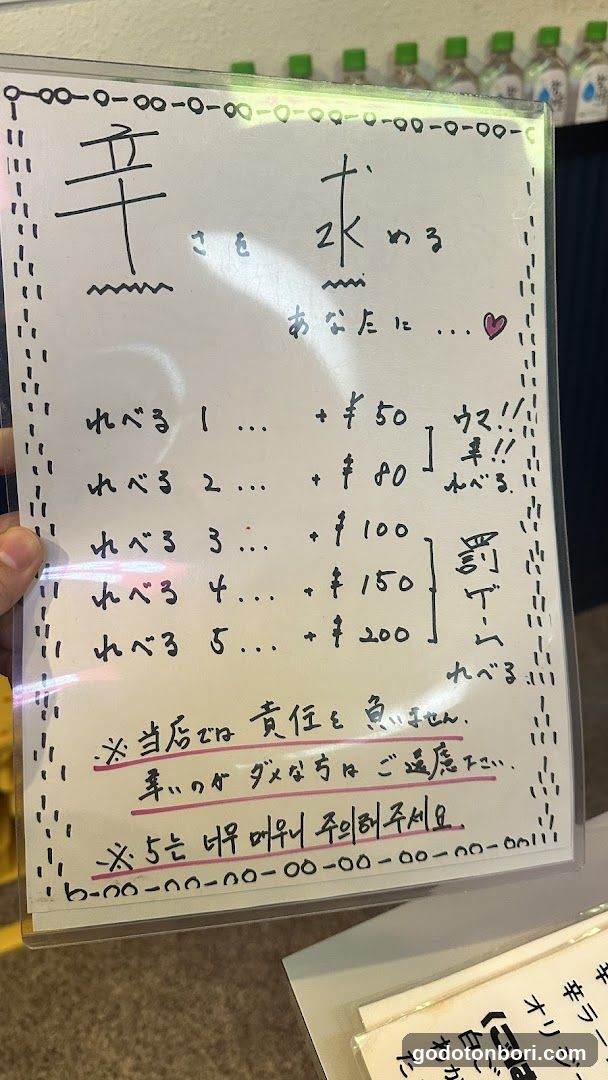 辛さを求める
あなたに...
れべる 1 ... +¥50
れべる 2 ... +¥80
ウマ!!
辛!!
れべる.
れべる 3 ... +¥100
れべる 4 ... +¥150
れべる 5 ... +¥200
罰ゲーム
れべる
※当店では責任を負いません.
辛いのがダメな方はご遠慮下さい.
※5는 너무 매우니 주의해주세요
辛ラ
オリジ
godotonbori.com